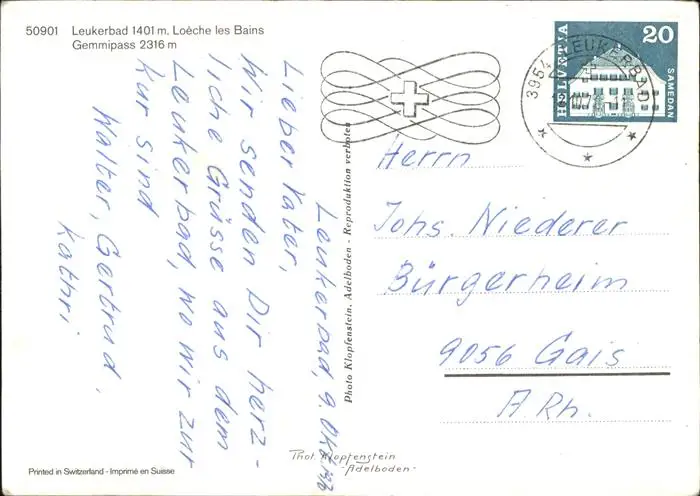 50901 Leukerbad 1401 m, Loèche les Bains
Gemmipass 2316 m
Leukerbad, 9. Okt.
Lieber Vater,
Wir senden Dir herz-
liche Grüsse aus dem
Leukerbad, wo wir zur
Kur sind
Walter, Gertrud,
Kathri
Photo Klopfenstein, Adelboden - Reproduktion verboten
HELVETIA
20
SAMEDAN
3954 LEUKERBAD
Herrn
Johs. Niederer
Bürgerheim
9056 Gais
A Rh.
Phot. Klopfenstein
- Adelboden -
Printed in Switzerland - Imprimé en Suisse